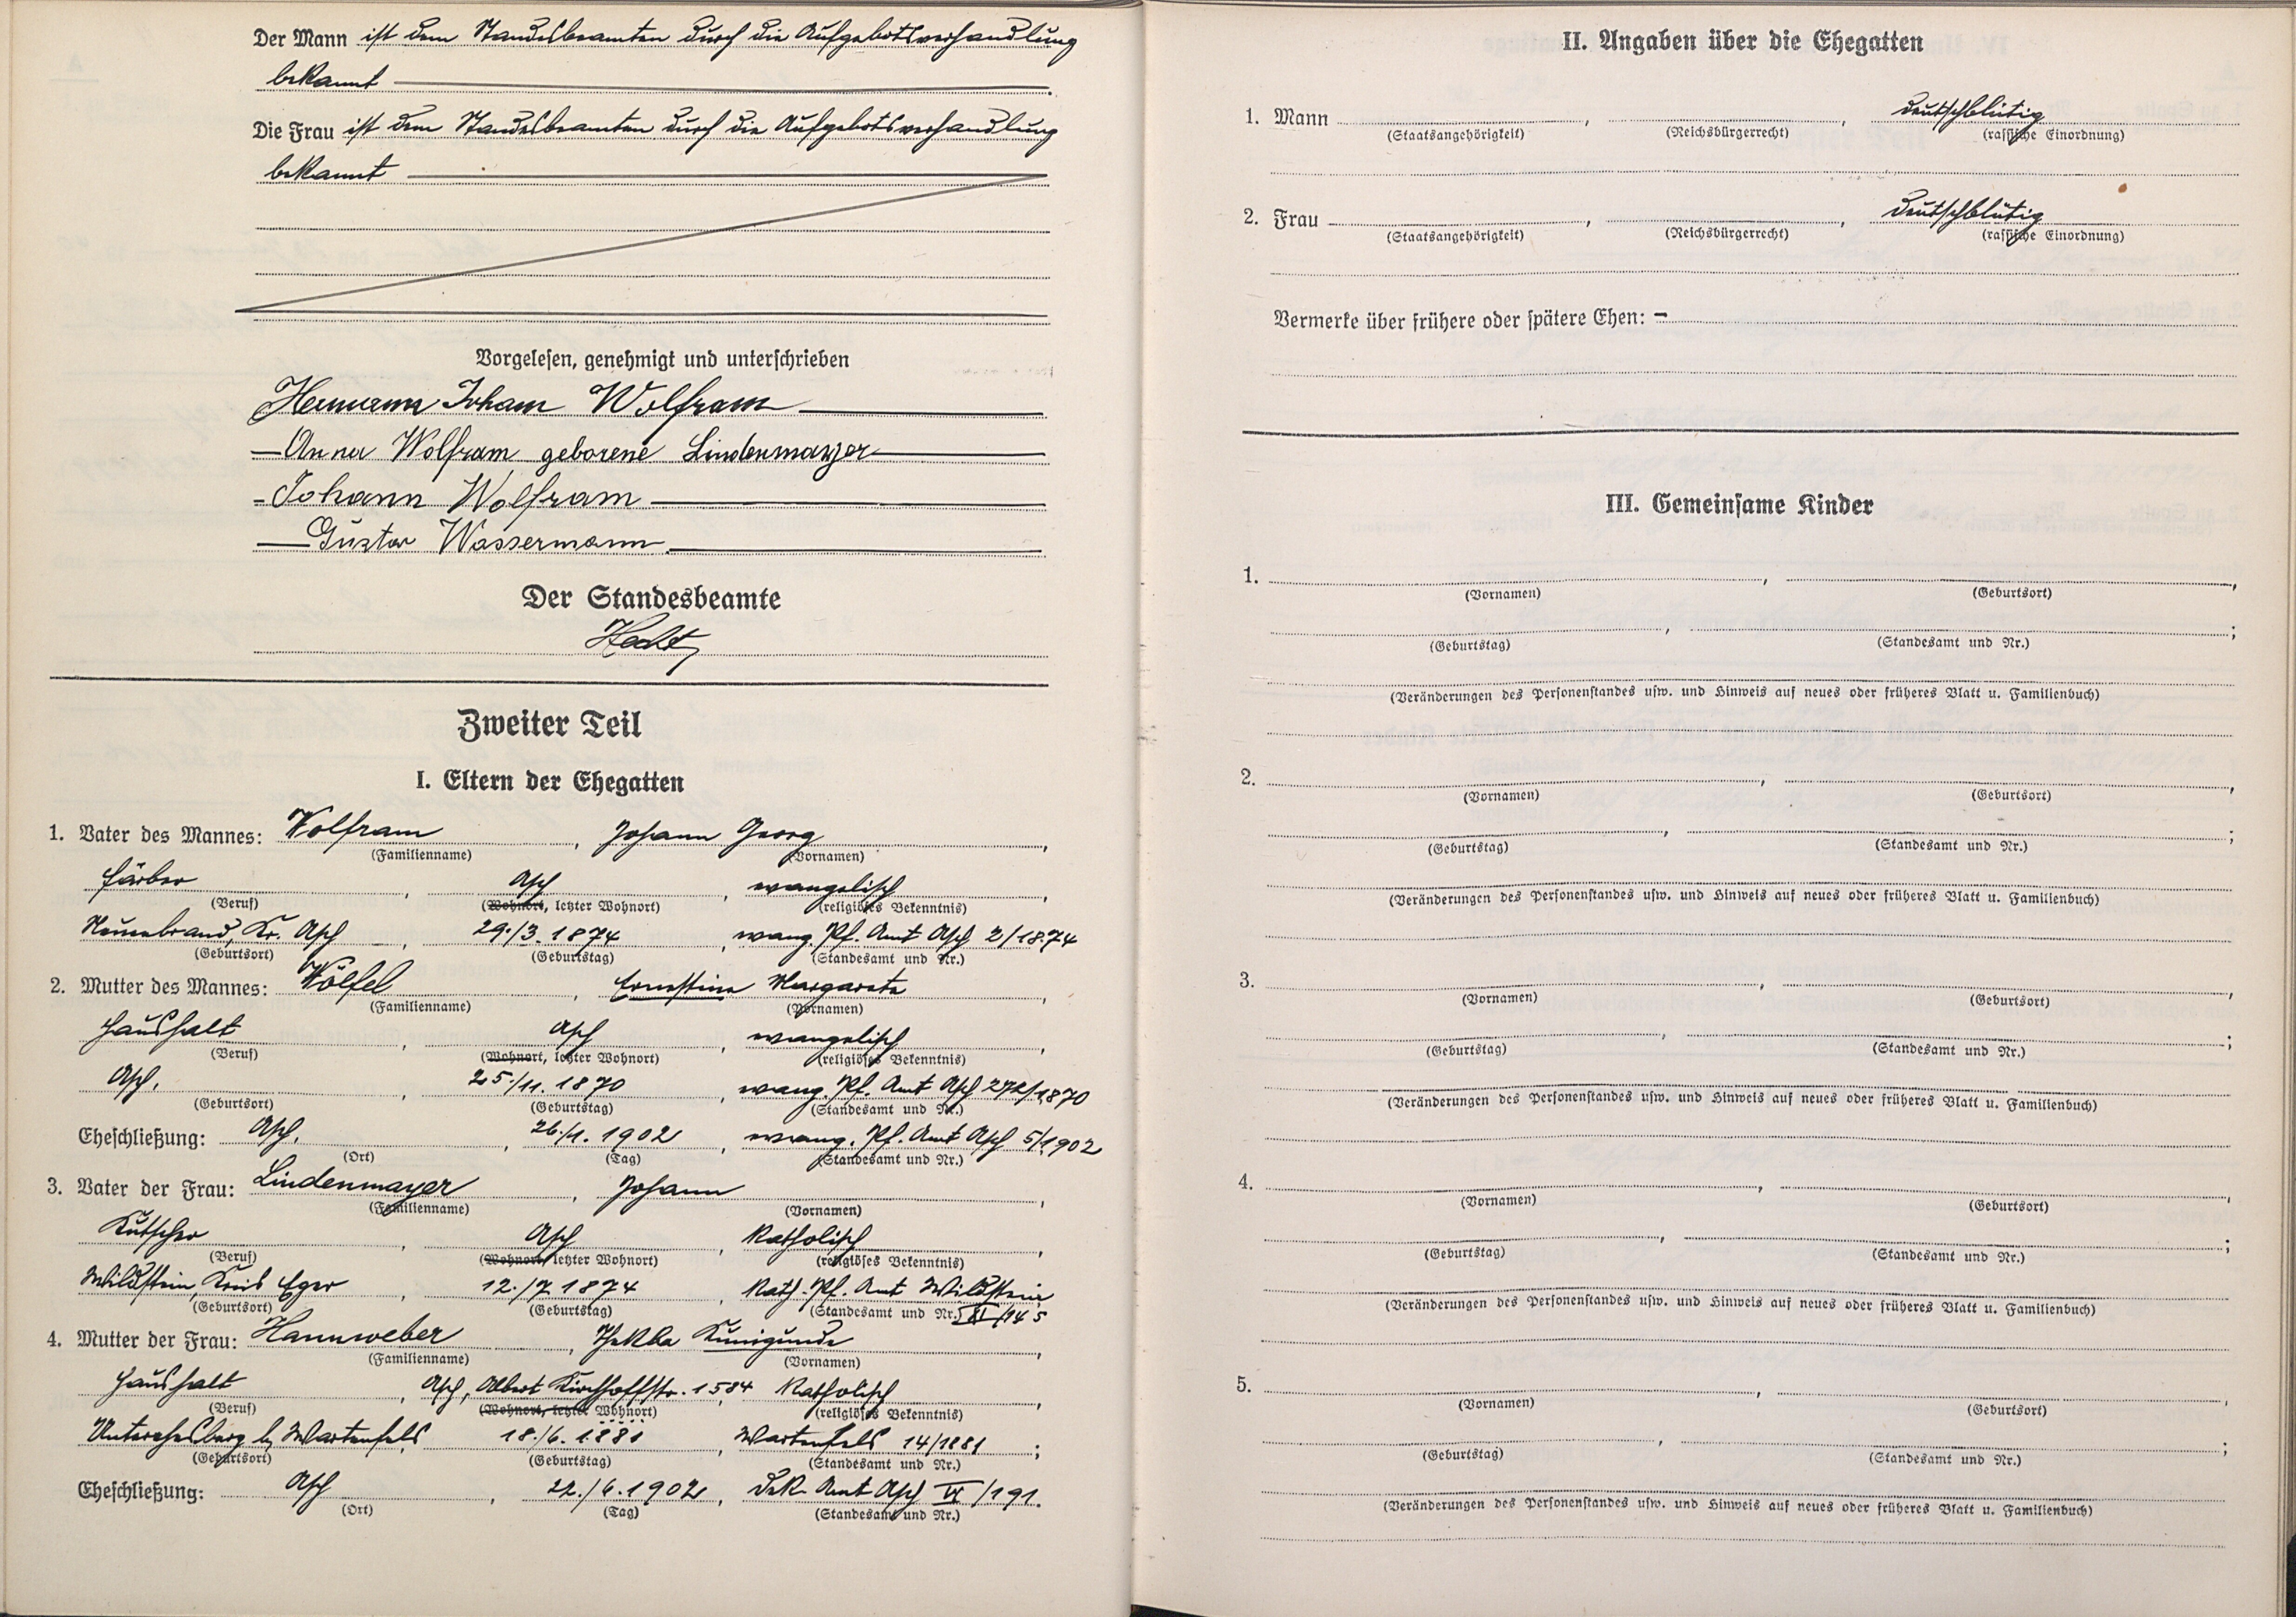 Der Mann ist dem Standesbeamten durch die Aufgebotsverhandlung
bekannt
Die Frau ist dem Standesbeamten durch die Aufgebotsverhandlung
bekannt
Vorgelesen, genehmigt und unterschrieben
Hermann Johann Wolfram
Anna Wolfram geborene Lindenmayer
Johann Wolfram
Gustav Wassermann
Der Standesbeamte
Hecht
Zweiter Teil
I. Eltern der Ehegatten
1. Vater des Mannes: Wolfram, Johann Georg,
(Familienname) (Vornamen)
Färber, Asch, evangelisch,
(Beruf) (Wohnort, letzter Wohnort) (religiöses Bekenntnis)
Neuenbrand, Kr. Asch, 29./3. 1874, evang. Pf. Amt Asch 2/1874
(Geburtsort) (Geburtstag) (Standesamt und Nr.)
2. Mutter des Mannes: Wölfel, Ernestine Margareta,
(Familienname) (Vornamen)
Haushalt, Asch, evangelisch,
(Beruf) (Wohnort, letzter Wohnort) (religiöses Bekenntnis)
Asch, 25./11. 1870, evang. Pf. Amt Asch 272/1870
(Geburtsort) (Geburtstag) (Standesamt und Nr.)
Eheschließung: Asch, 26./1. 1902, evang. Pf. Amt Asch 5/1902
(Ort) (Tag) (Standesamt und Nr.)
3. Vater der Frau: Lindenmayer, Johann,
(Familienname) (Vornamen)
Kutscher, Asch, katholisch,
(Beruf) (Wohnort, letzter Wohnort) (religiöses Bekenntnis)
Wildstein, Kreis Eger, 12./7. 1874, Kath. Pf. Amt Wildstein
(Geburtsort) (Geburtstag) (Standesamt und Nr.) XI/145
4. Mutter der Frau: Hannweber, Thekla Kunigunde,
(Familienname) (Vornamen)
Haushalt, Asch, Albert Kirchhoffstr. 1584, katholisch,
(Beruf) (Wohnort, letzter Wohnort) (religiöses Bekenntnis)
b. Wartenfels, 18./6. 1881, Wartenfels 14/1881;
(Geburtsort) (Geburtstag) (Standesamt und Nr.)
Eheschließung: Asch, 22./6. 1902, Dek. Amt Asch VI/191.
(Ort) (Tag) (Standesamt und Nr.)
II. Angaben über die Ehegatten
1. Mann , , deutschblütig
(Staatsangehörigkeit) (Reichsbürgerrecht) (rassische Einordnung)
2. Frau , , deutschblütig
(Staatsangehörigkeit) (Reichsbürgerrecht) (rassische Einordnung)
Vermerke über frühere oder spätere Ehen: –
III. Gemeinsame Kinder
1. , ,
(Vornamen) (Geburtsort)
, ;
(Geburtstag) (Standesamt und Nr.)
(Veränderungen des Personenstandes usw. und Hinweis auf neues oder früheres Blatt u. Familienbuch)
2. , ,
(Vornamen) (Geburtsort)
, ;
(Geburtstag) (Standesamt und Nr.)
(Veränderungen des Personenstandes usw. und Hinweis auf neues oder früheres Blatt u. Familienbuch)
3. , ,
(Vornamen) (Geburtsort)
, ;
(Geburtstag) (Standesamt und Nr.)
(Veränderungen des Personenstandes usw. und Hinweis auf neues oder früheres Blatt u. Familienbuch)
4. , ,
(Vornamen) (Geburtsort)
, ;
(Geburtstag) (Standesamt und Nr.)
(Veränderungen des Personenstandes usw. und Hinweis auf neues oder früheres Blatt u. Familienbuch)
5. , ,
(Vornamen) (Geburtsort)
, ;
(Geburtstag) (Standesamt und Nr.)
(Veränderungen des Personenstandes usw. und Hinweis auf neues oder früheres Blatt u. Familienbuch)